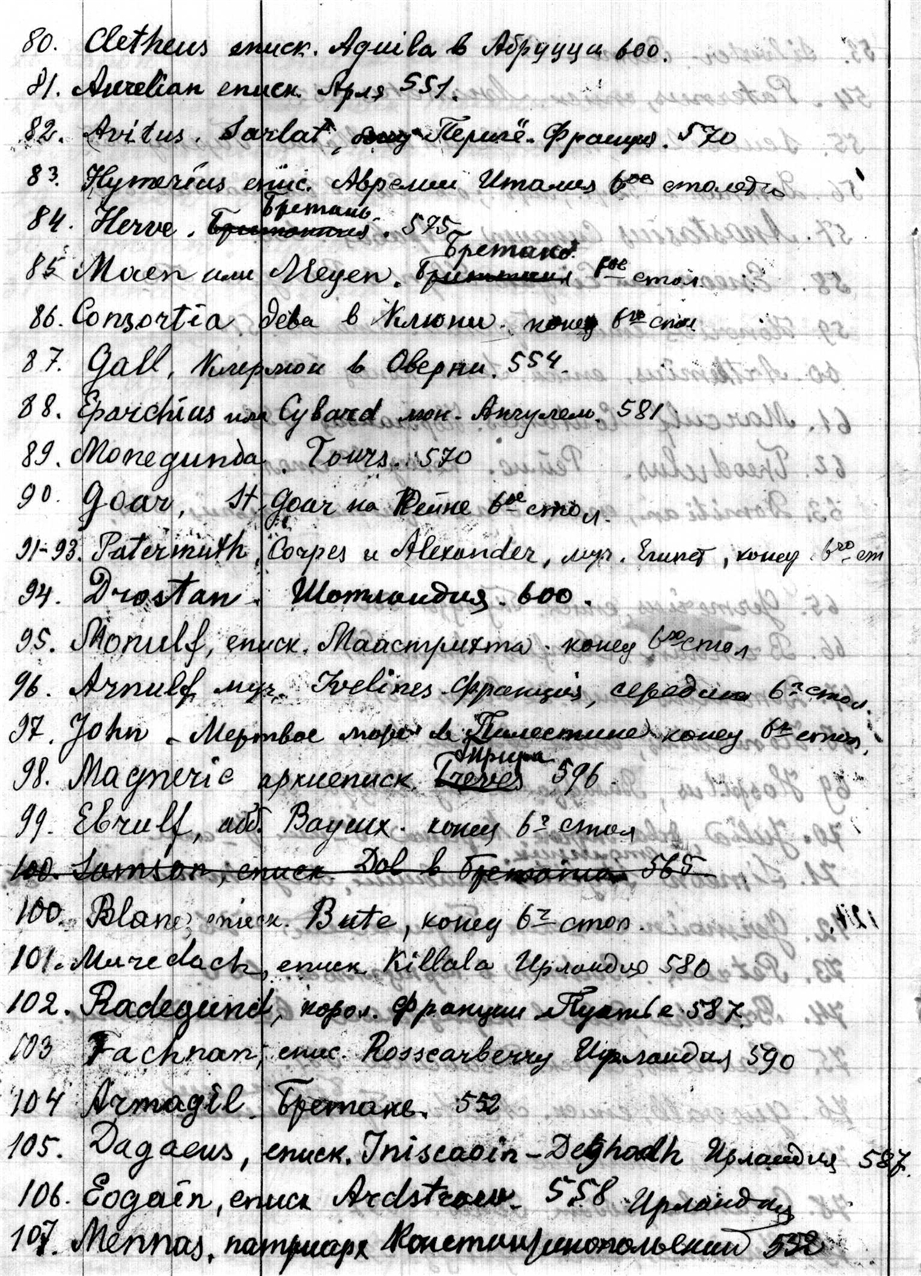 80. Cletheus еписк. Aquila в Абруцци 600.
81. Aurelian еписк. Арля 551.
82. Avitus. Sarlat, Перигё. Франция. 570
83. Hymerius епис. Аврелии Италия 6ое столетие
84. Herve. Бретань. 575
85 Maen или Meyen. Бретань стол
86. Consortia дева в Клюни. конец 6го стол
87. Gall, Клермон в Оверни. 554.
88. Eparchius или Cybard мон. Ангулем. 581
89. Monegunda. Tours. 570
90. Goar, St. Goar на Рейне 6ое стол.
91-93. Patermuth, Copres и Alexander, муч. Египет, конец 6го ст
94. Drostan. Шотландия. 600.
95. Monulf, еписк. Маастрихта. конец 6го стол
96. Arnulf муч. Ivelines Франция, середина 6го стол.
97. John - Мертвое море в Палестине конец 6го стол.
98. Magneric архиеписк. Трира 596
99. Ebrulf, абб. конец 6го стол
100. Samson, еписк Dol в 565
100. Blane еписк. Bute, конец 6го стол.
101. Muredach, еписк Killala Ирландия 580
102. Radegund, корол. Франции Пуатье 587.
103 Fachnan, епис. Rosscarberry Ирландия 590
104 Armagil Бретань. 552
105. Dagaeus, еписк. Iniscaoin-Deghadh Ирландия 587.
106. Eogain, еписк Ardstraw. 558 Ирландия
107. Mennas, патриарх Константинопольский 552